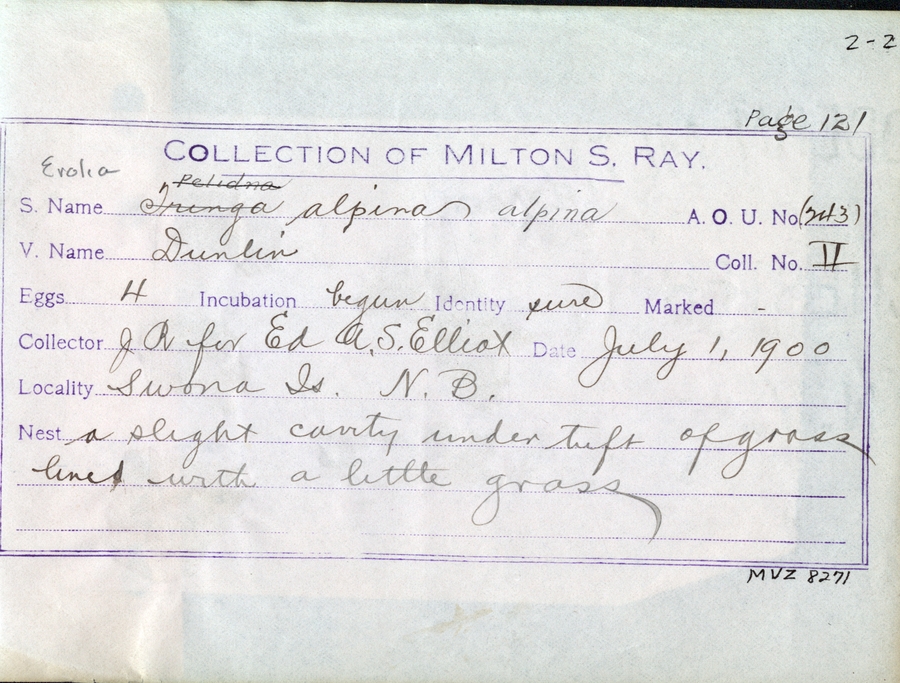 2-2
Page 121
COLLECTION OF MILTON S. RAY.
Erolia
Pelidna
S. Name Tringa alpina alpina A. O. U. No. (243)
V. Name Dunlin Coll. No. II
Eggs 4 Incubation begun Identity sure Marked -
Collector J R for Ed A.S. Elliot Date July 1, 1900
Locality Swona Is. N. B.
Nest a slight cavity under tuft of grass
lined with a little grass
MVZ 8271